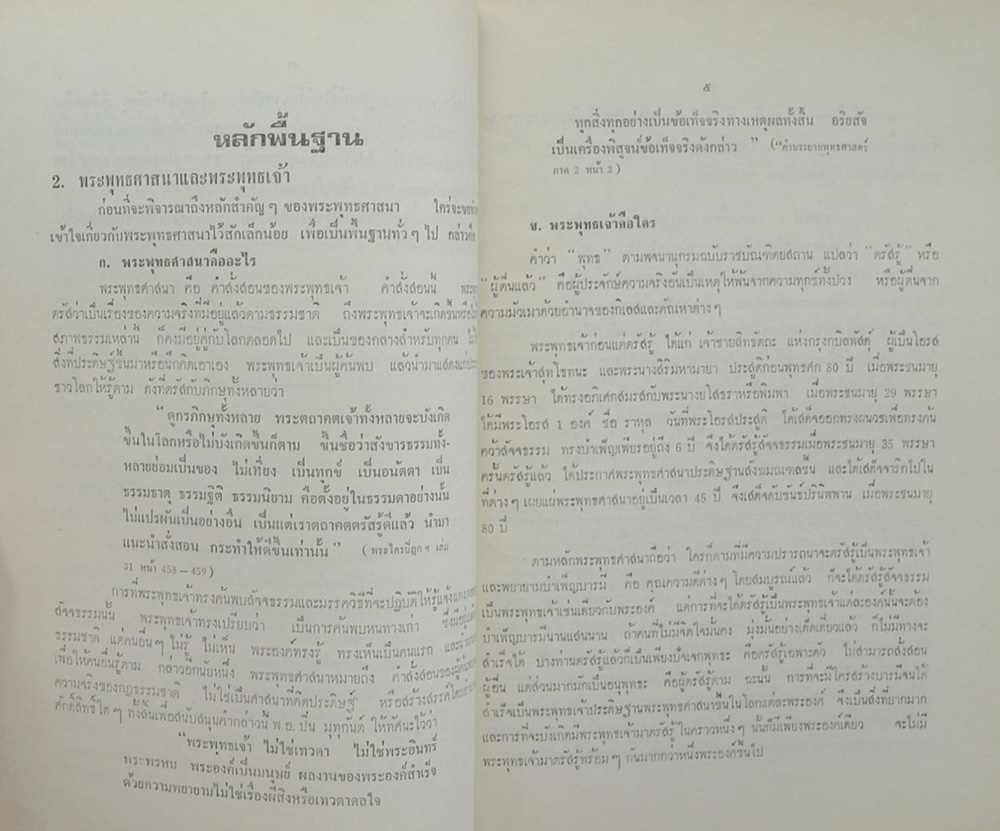 หลักพื้นฐาน
2. พระพุทธศาสนาและพระพุทธเจ้า
ก่อนที่จะพิจารณาถึงหลักสำคัญๆ ของพระพุทธศาสนา ใคร่จะขอ
เข้าใจเกี่ยวกับพระพุทธศาสนาไว้สักเล็กน้อย เพื่อเป็นพื้นฐานทั่วๆ ไป กล่าวคือ
ก. พระพุทธศาสนาคืออะไร
พระพุทธศาสนา คือ คำสั่งสอนของพระพุทธเจ้า คำสั่งสอนนี้
ตรัสว่าเป็นเรื่องของความจริงที่มีอยู่แล้วตามธรรมชาติ ถึงพระพุทธเจ้าจะเกิดขึ้นหรือไม่
สภาพธรรมเหล่านี้ ก็คงมีอยู่คู่กับโลกตลอดไป และเป็นของกลางสำหรับทุกคน
สิ่งที่ประดิษฐ์ขึ้นมาหรือนึกคิดเอาเอง พระพุทธเจ้าเป็นผู้ค้นพบ แล้วนำมาแสดงแก่
ชาวโลกให้รู้ตาม ดังที่ตรัสกับภิกษุทั้งหลายว่า
"ดูกรภิกษุทั้งหลาย พระตถาคตเจ้าทั้งหลายจะบังเกิด
ขึ้นในโลกหรือไม่บังเกิดขึ้นก็ตาม ขึ้นชื่อว่าสังขารธรรมทั้ง-
หลายย่อมเป็นของ ไม่เที่ยง เป็นทุกข์ เป็นอนัตตา เป็น
ธรรมธาตุ ธรรมฐิติ ธรรมนิยาม คือตั้งอยู่ในธรรมดาอย่างนั้น
ไม่แปรผันเป็นอย่างอื่น เป็นแต่เราตถาคตตรัสรู้ดีแล้ว นำมา
แนะนำสั่งสอน กระทำให้ดีขึ้นเท่านั้น" (พระไตรปิฎก ฯ เล่ม
31 หน้า 458–459)
การที่พระพุทธเจ้าทรงค้นพบสัจจธรรมและมรรควิธีที่จะปฏิบัติให้รู้แจ้ง
สัจจธรรมนั้น พระพุทธเจ้าทรงเปรียบว่า เป็นการค้นพบหนทางเก่า ซึ่งมีอยู่
ธรรมชาติ แต่คนอื่นๆ ไม่รู้ ไม่เห็น พระองค์ทรงรู้ ทรงเห็นเป็นคนแรก
เพื่อให้คนอื่นรู้ตาม กล่าวอีกนัยหนึ่ง พระพุทธศาสนาหมายถึง คำสั่งสอนของผู้
ความจริงของกฎธรรมชาติ ไม่ใช่เป็นศาสนาที่คิดประดิษฐ์ หรือสร้างสรรค์โดย
ศักดิ์สิทธิ์ใดๆ ทั้งสิ้นเพื่อสนับสนุนคำกล่าวนี้ พ.อ. ปิ่น มุทุกันต์ ให้ทัศนะไว้ว่า
"พระพุทธเจ้า ไม่ใช่เทวดา ไม่ใช่พระอินทร์
พระพรหม พระองค์เป็นมนุษย์ ผลงานของพระองค์สำเร็จ
ด้วยความพยายามไม่ใช่เรื่องผีสิงหรือเทวดาดลใจ
๕
ทุกสิ่งทุกอย่างเป็นข้อเท็จจริงทางเหตุผลทั้งสิ้น อริยสัจ
เป็นเครื่องพิสูจน์ข้อเท็จจริงดังกล่าว " ("คำบรรยายพุทธศาสตร์
ภาค 2 หน้า 3)
ข. พระพุทธเจ้าคือใคร
คำว่า "พุทธ" ตามพจนานุกรมฉบับราชบัณฑิตยสถาน แปลว่า "ตรัสรู้" หรือ
"ผู้ตื่นแล้ว" คือผู้ประจักษ์ความจริงอันเป็นเหตุให้พ้นจากความทุกข์ทั้งปวง หรือผู้ตื่นจาก
ความมัวเมาด้วยอำนาจของกิเลสและตัณหาต่างๆ
พระพุทธเจ้าก่อนแต่ตรัสรู้ ได้แก่ เจ้าชายสิทธัตถะ แห่งกรุงกบิลพัสดุ์ ผู้เป็นโอรส
ของพระเจ้าสุทโธทนะ และพระนางสิริมหามายา ประสูติก่อนพุทธศก 80 ปี เมื่อพระชนมายุ
16 พรรษา ได้ทรงอภิเศกสมรสกับพระนางยโสธราหรือพิมพา เมื่อพระชนมายุ 29 พรรษา
ได้มีพระโอรส 1 องค์ ชื่อ ราหุล วันที่พระโอรสประสูติ ได้เสด็จออกทรงผนวชเพื่อทรงค้น
คว้าสัจจธรรม ทรงบำเพ็ญเพียรอยู่ถึง 6 ปี จึงได้ตรัสรู้สัจจธรรมเมื่อพระชนมายุ 35 พรรษา
ครั้นตรัสรู้แล้ว ได้ประกาศพระพุทธศาสนาประดิษฐานสังฆมณฑลขึ้น และได้เสด็จจาริกไปใน
ที่ต่างๆ เผยแผ่พระพุทธศาสนาอยู่เป็นเวลา 45 ปี จึงเสด็จดับขันธ์ปรินิพพาน เมื่อพระชนมายุ
80 ปี
ตามหลักพระพุทธศาสนาถือว่า ใครก็ตามที่มีความปรารถนาจะตรัสรู้เป็นพระพุทธเจ้า
และพยายามบำเพ็ญบารมี คือ คุณความดีต่างๆ โดยสมบูรณ์แล้ว ก็จะได้ตรัสรู้สัจจธรรม
เป็นพระพุทธเจ้าเช่นเดียวกับพระองค์ แต่การที่จะได้ตรัสรู้เป็นพระพุทธเจ้าแต่ละองค์นั้นจะต้อง
บำเพ็ญบารมีนานแสนนาน ถ้าคนที่ไม่มีจิตใจมั่นคง มุ่งมั่นอย่างเด็ดเดี่ยวแล้ว ก็ไม่มีทางจะ
สำเร็จได้ บางท่านตรัสรู้แล้วก็เป็นเพียงปัจเจกพุทธะ คือตรัสรู้เฉพาะตัว ไม่สามารถสั่งสอน
ผู้อื่น แต่ส่วนมากมักเป็นอนุพุทธะ คือผู้ตรัสรู้ตาม ฉะนั้น การที่จะมีใครสร้างบารมีจนได้
สำเร็จเป็นพระพุทธเจ้าประดิษฐานพระพุทธศาสนาขึ้นในโลกแต่ละพระองค์ จึงเป็นสิ่งที่ยากมาก
และการที่จะบังเกิดมีพระพุทธเจ้ามาตรัสรู้ในคราวหนึ่งๆ นั้นก็มีเพียงพระองค์เดียว จะไม่มี
พระพุทธเจ้ามาตรัสรู้พร้อมๆ กันมากกว่าหนึ่งพระองค์ขึ้นไป